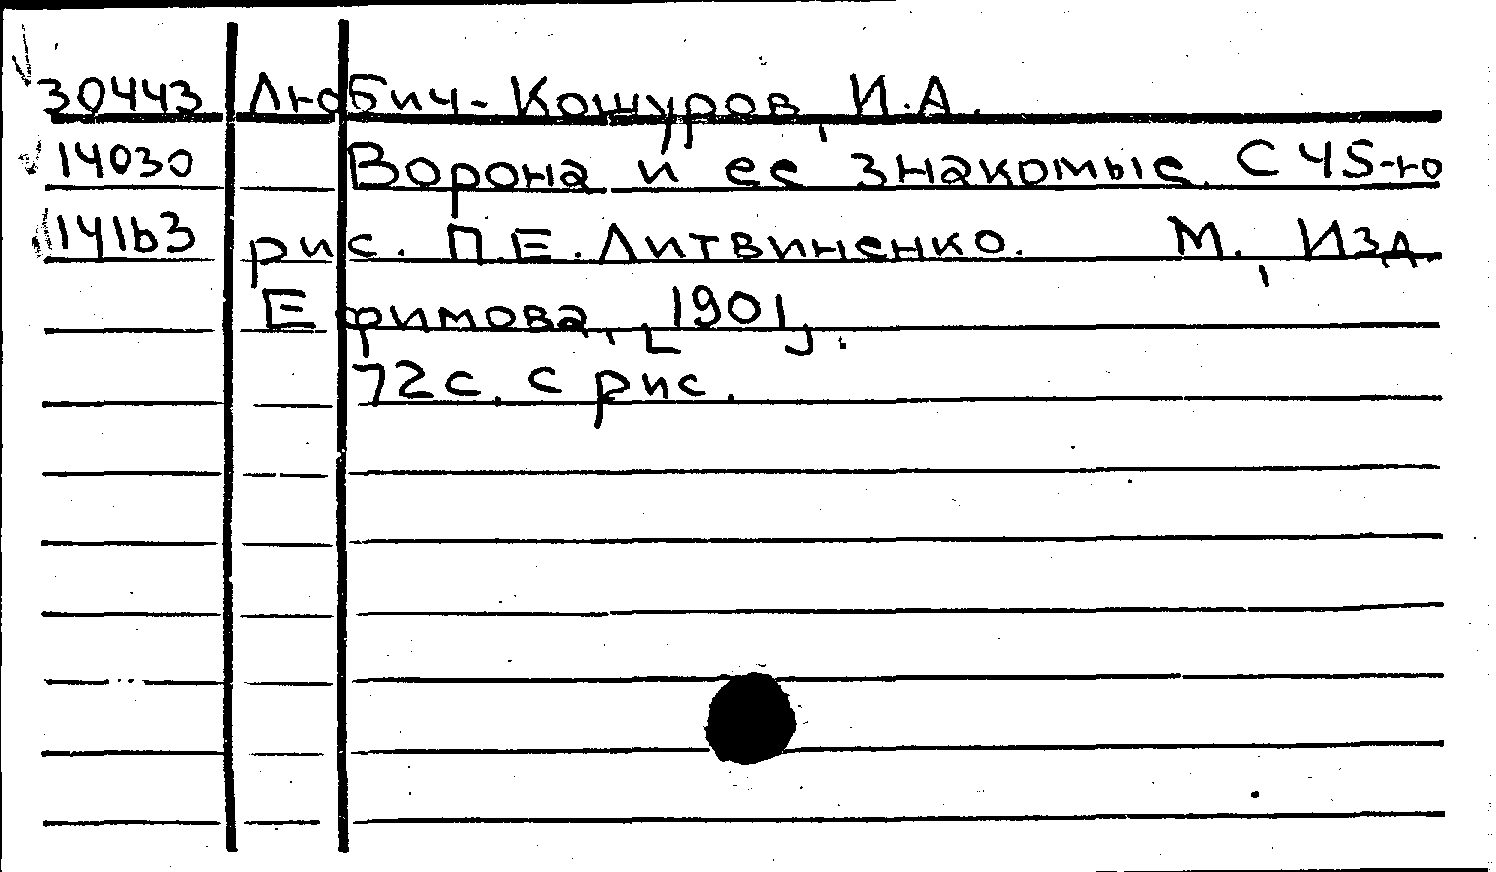 30443 Любич-Кошуров, И.А.
14030 Ворона и ее знакомые. С 45-ю
14163 рис. П.Е. Литвиненко. М., Изд.
Ефимова, [1901].
72 с. с рис.